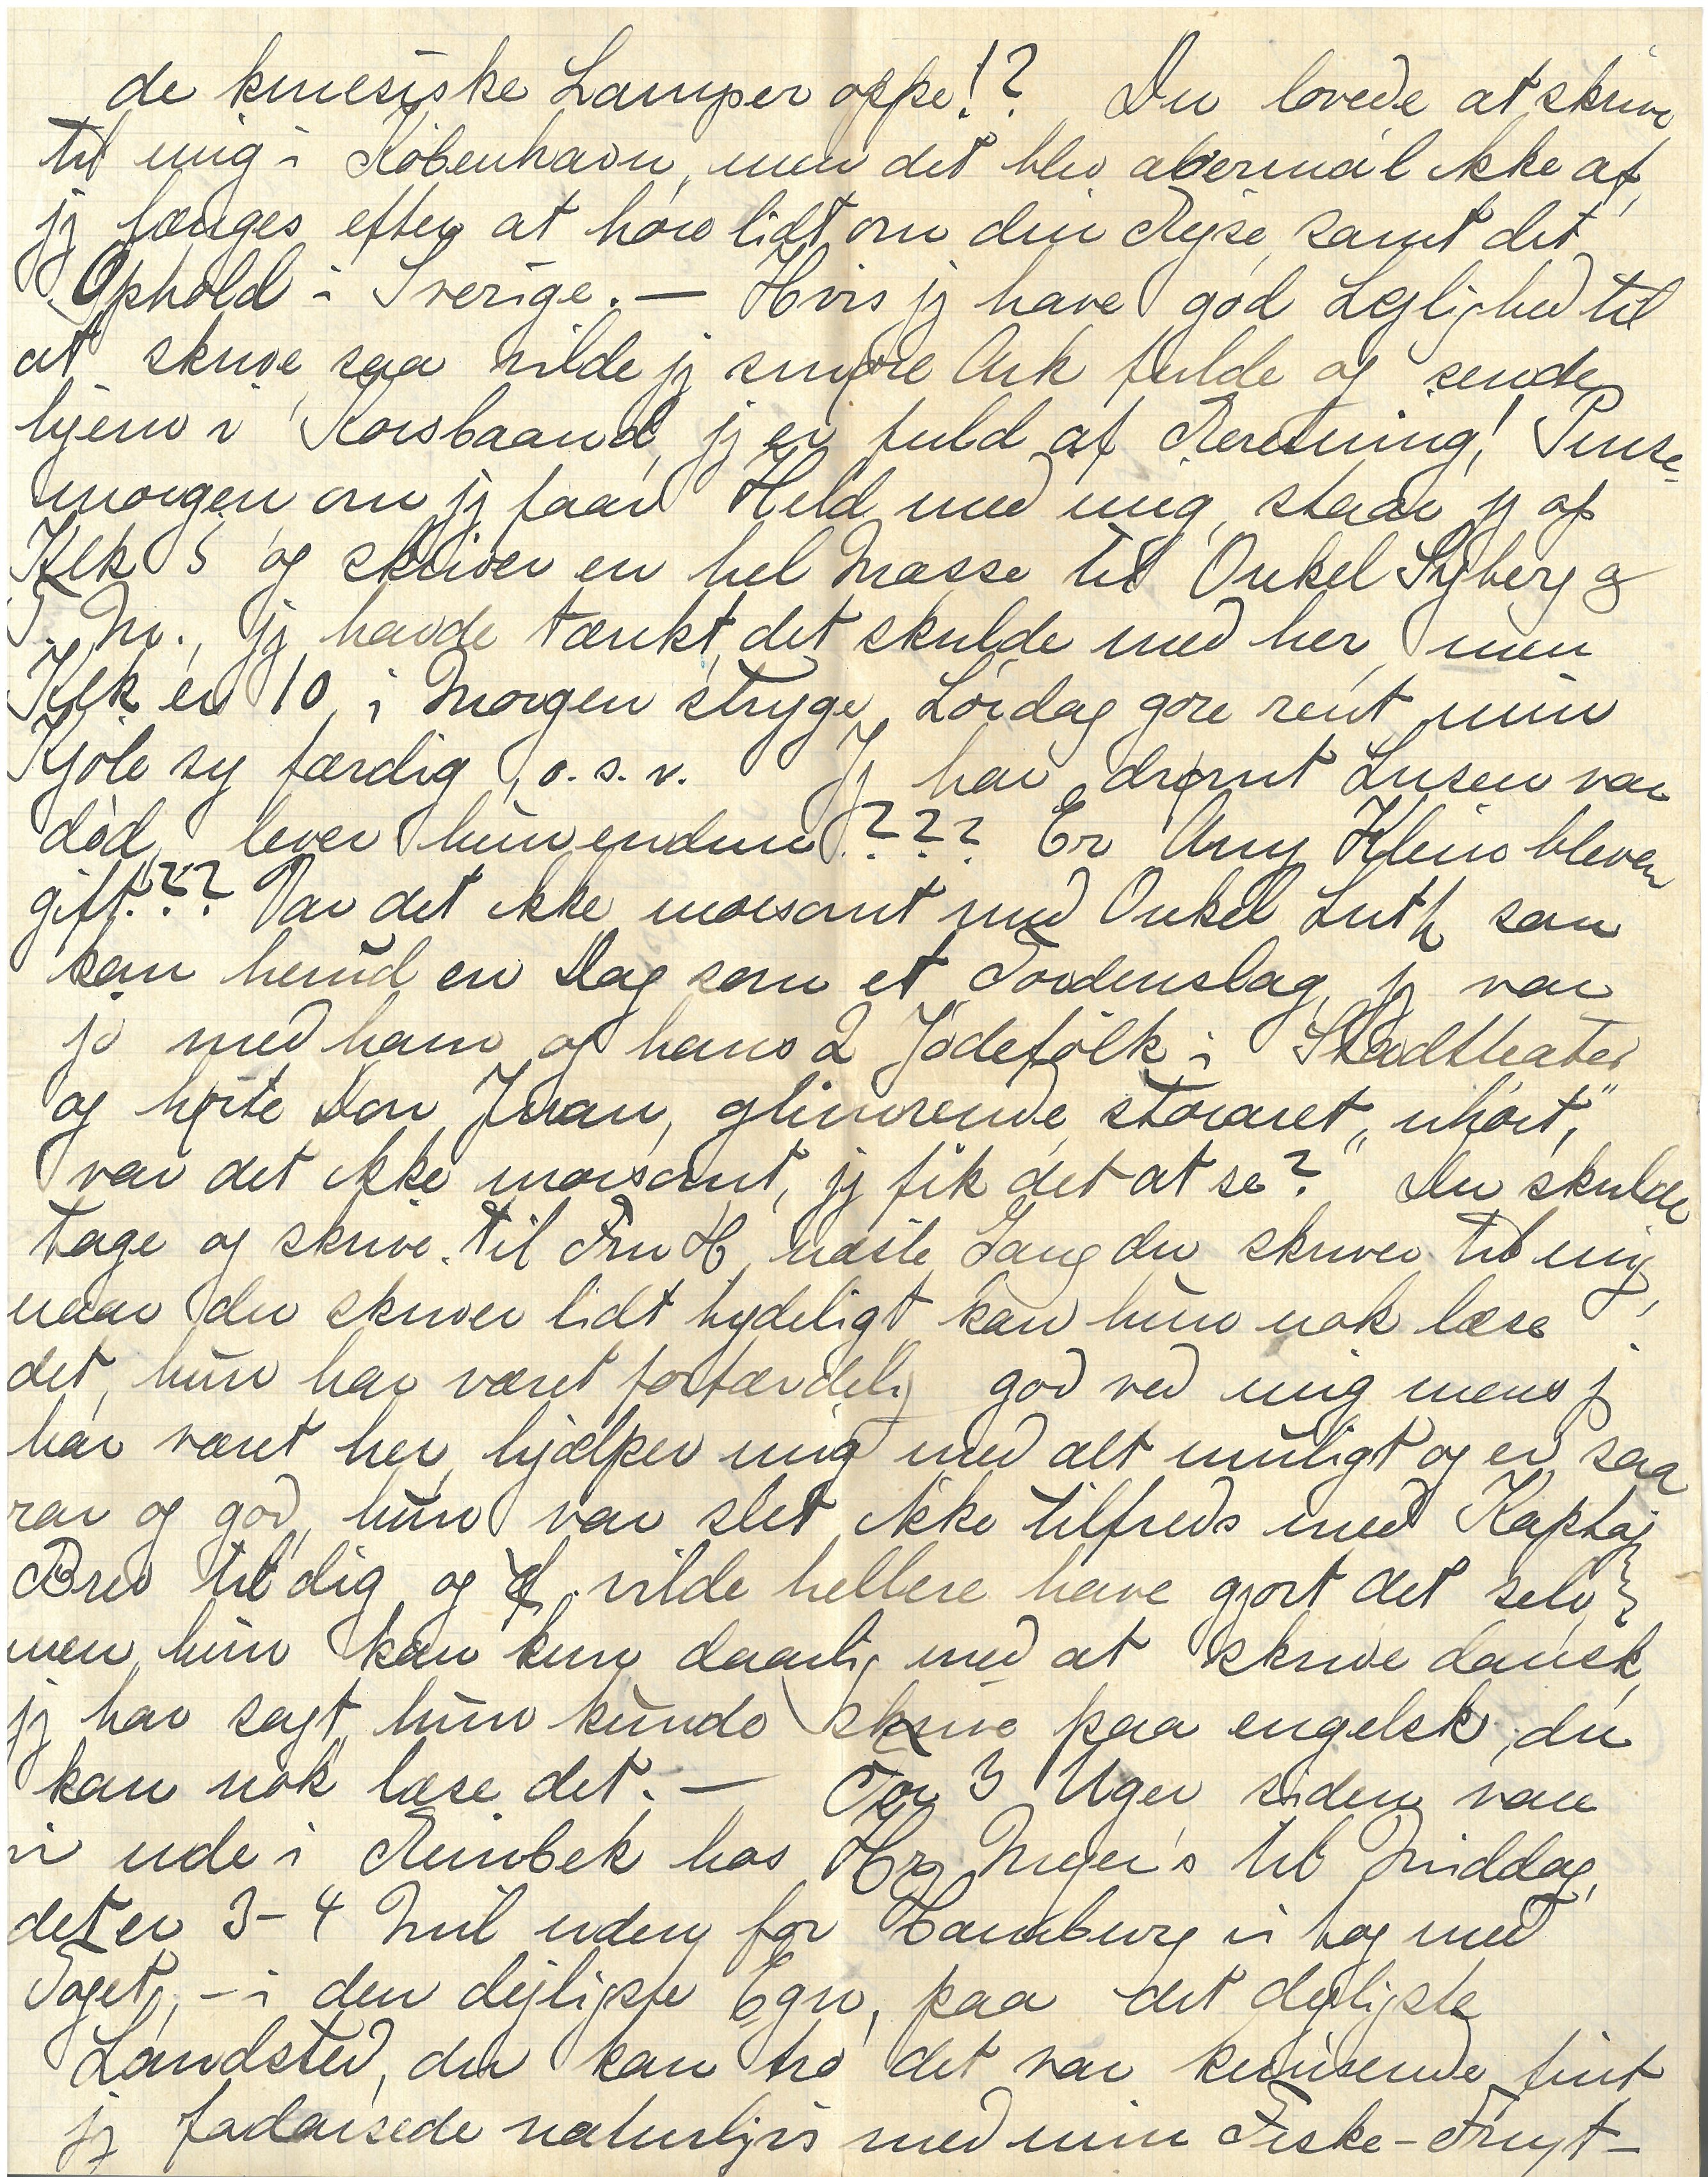 de kinesiske Lamper oppe!? Du lovede at skrive
til mig i København, men det blev abermal ikke af,
jg længes efter at høre lidt om din Rejse, samt dit
Ophold i Sverige. — Hvis jg have god Lejlighed til
at skrive, saa vilde jg smøre Ark fulde og sende
hjem i Korsbaand, jg er fuld af Beretning! Pinse-
morgen om jg faar Held med mig, staar jg op
Klk 5 og skriver en hel Masse til Onkel Syberg og
T. M., jg havde tænkt, det skulde med her, men
Klk er 10, i Morgen stryge, Lørdag gøre rent, min
Kjole sy færdig, o.s.v. Jg har drømt Lusen var
død, lever hun endnu??? Er Amy Klein bleven
gift??? Var det ikke morsomt med Onkel Luth som
kom herud en Dag som et Tordenslag, jg var
jo med ham og hans 2 Jødefolk i Stadttheater
og hørte Don Juan, glimrende, storaret, "uhørt,"
var det ikke morsomt, jg fik det at se? Du skulde
tage og skrive til Fru H næste Gang du skriver til mig,
naar du skriver lidt tydeligt kan hun nok læse
det, hun har været forfærdelig god ved mig mens j
har været her, hjælper mig med alt muligt og er saa
rar og god, hun var slet ikke tilfreds med Kaptaj
Brev til dig og vilde hellere have gjort det selv,
men hun kan kun daarlig med at skrive dansk,
jg har sagt, hun kunde skrive paa engelsk, du
kan nok læse det. — For 3 Uger siden var
vi ude i Reinbek hos Hr Meyer's til Middag,
det er 3-4 Mil uden for Hamburg vi tog med
Toget, - i den dejligste Egn, paa det dejligste
Landsted, du kan tro det var knusende fint
jg fadaisede naturligvis med min Fiske-Frugt-